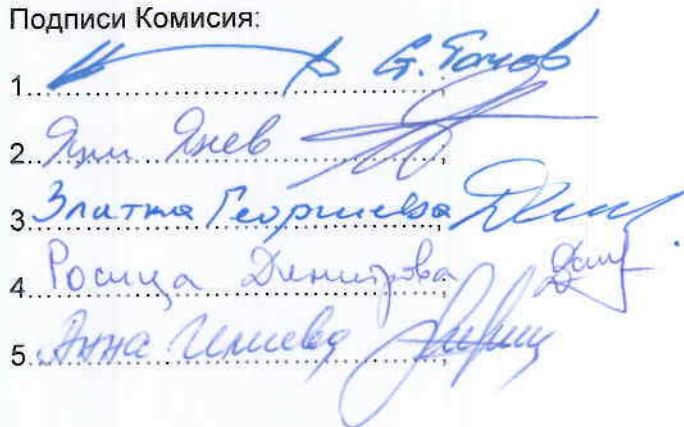 Подписи Комисия:
1.
2. Яни Янев
3 Златка Георгиева
4 Росица Димитрова
5. Анна Илиева